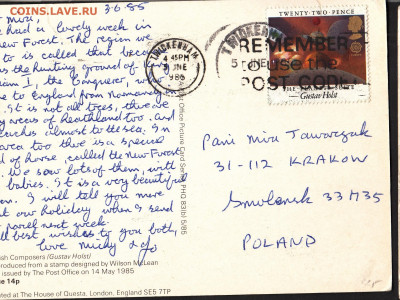 COINS.LAVE.RU
3.6.85
mira,
had a lovely week in
New Forest. The region we
to is called that because
was the hunting ground of
I, the Conqueror, who
to England from Normandy
It is not all trees, there are
areas of heathland too. and
reaches almost to the sea. In
area too there is a special
of horse, called the New Forest
we saw lots of them, with
babies. It is a very beautiful
I will tell you more
our holiday when I send
parcel next week.
best wishes to you both,
love
TWICKENHAM
4.45PM
JUNE
REMEMBER
to use the
POST CODE
TWENTY-TWO PENCE
Gustav Holst
Pani Mira
31-112 KRAKOW
Smolensk 33 M35
POLAND
Post Office Picture Card Series PHQ 83(b) 5/85
Composers (Gustav Holst)
produced from a stamp designed by Wilson McLean
issued by The Post Office on 14 May 1985
14p
at The House of Questa, London, England SE5 7TP